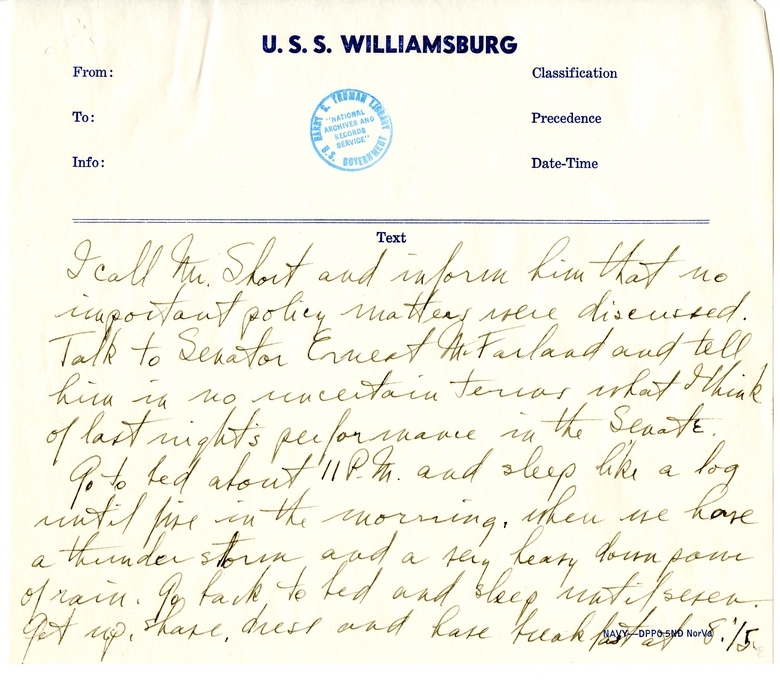 U. S. S. WILLIAMSBURG
From:
Classification
To:
Precedence
Info:
Date-Time
HARRY S. TRUMAN LIBRARY
"NATIONAL
ARCHIVES AND
RECORDS
SERVICE"
U.S. GOVERNMENT
Text
I call Mr. Short and inform him that no
important policy matters were discussed.
Talk to Senator Ernest McFarland and tell
him in no uncertain terms what I think
of last night's performance in the Senate.
Go to bed about 11 P.M. and sleep like a log
until five in the morning, when we have
a thunder storm and a very heavy down pour
of rain. Go back to bed and sleep until seven.
Get up, shave, dress and have breakfast at 8:15
NAVY—DPPO 5ND NorVa